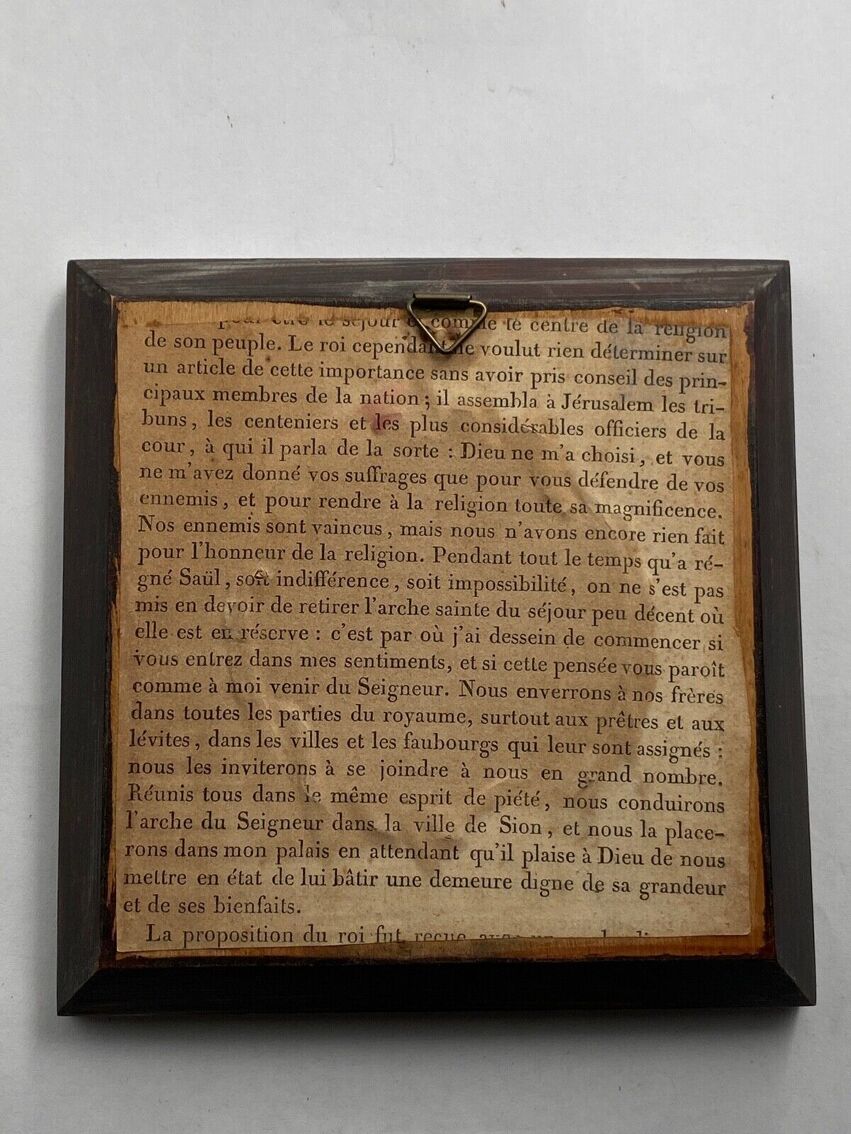 pour être le séjour et comme le centre de la religion
de son peuple. Le roi cependant ne voulut rien déterminer sur
un article de cette importance sans avoir pris conseil des prin-
cipaux membres de la nation ; il assembla à Jérusalem les tri-
buns, les centeniers et les plus considérables officiers de la
cour, à qui il parla de la sorte : Dieu ne m'a choisi, et vous
ne m'avez donné vos suffrages que pour vous défendre de vos
ennemis, et pour rendre à la religion toute sa magnificence.
Nos ennemis sont vaincus, mais nous n'avons encore rien fait
pour l'honneur de la religion. Pendant tout le temps qu'a ré-
gné Saül, soit indifférence, soit impossibilité, on ne s'est pas
mis en devoir de retirer l'arche sainte du séjour peu décent où
elle est en réserve : c'est par où j'ai dessein de commencer si
vous entrez dans mes sentiments, et si cette pensée vous paroît
comme à moi venir du Seigneur. Nous enverrons à nos frères
dans toutes les parties du royaume, surtout aux prêtres et aux
lévites, dans les villes et les faubourgs qui leur sont assignés :
nous les inviterons à se joindre à nous en grand nombre.
Réunis tous dans le même esprit de piété, nous conduirons
l'arche du Seigneur dans la ville de Sion, et nous la place-
rons dans mon palais en attendant qu'il plaise à Dieu de nous
mettre en état de lui bâtir une demeure digne de sa grandeur
et de ses bienfaits.
La proposition du roi fut reçue avec